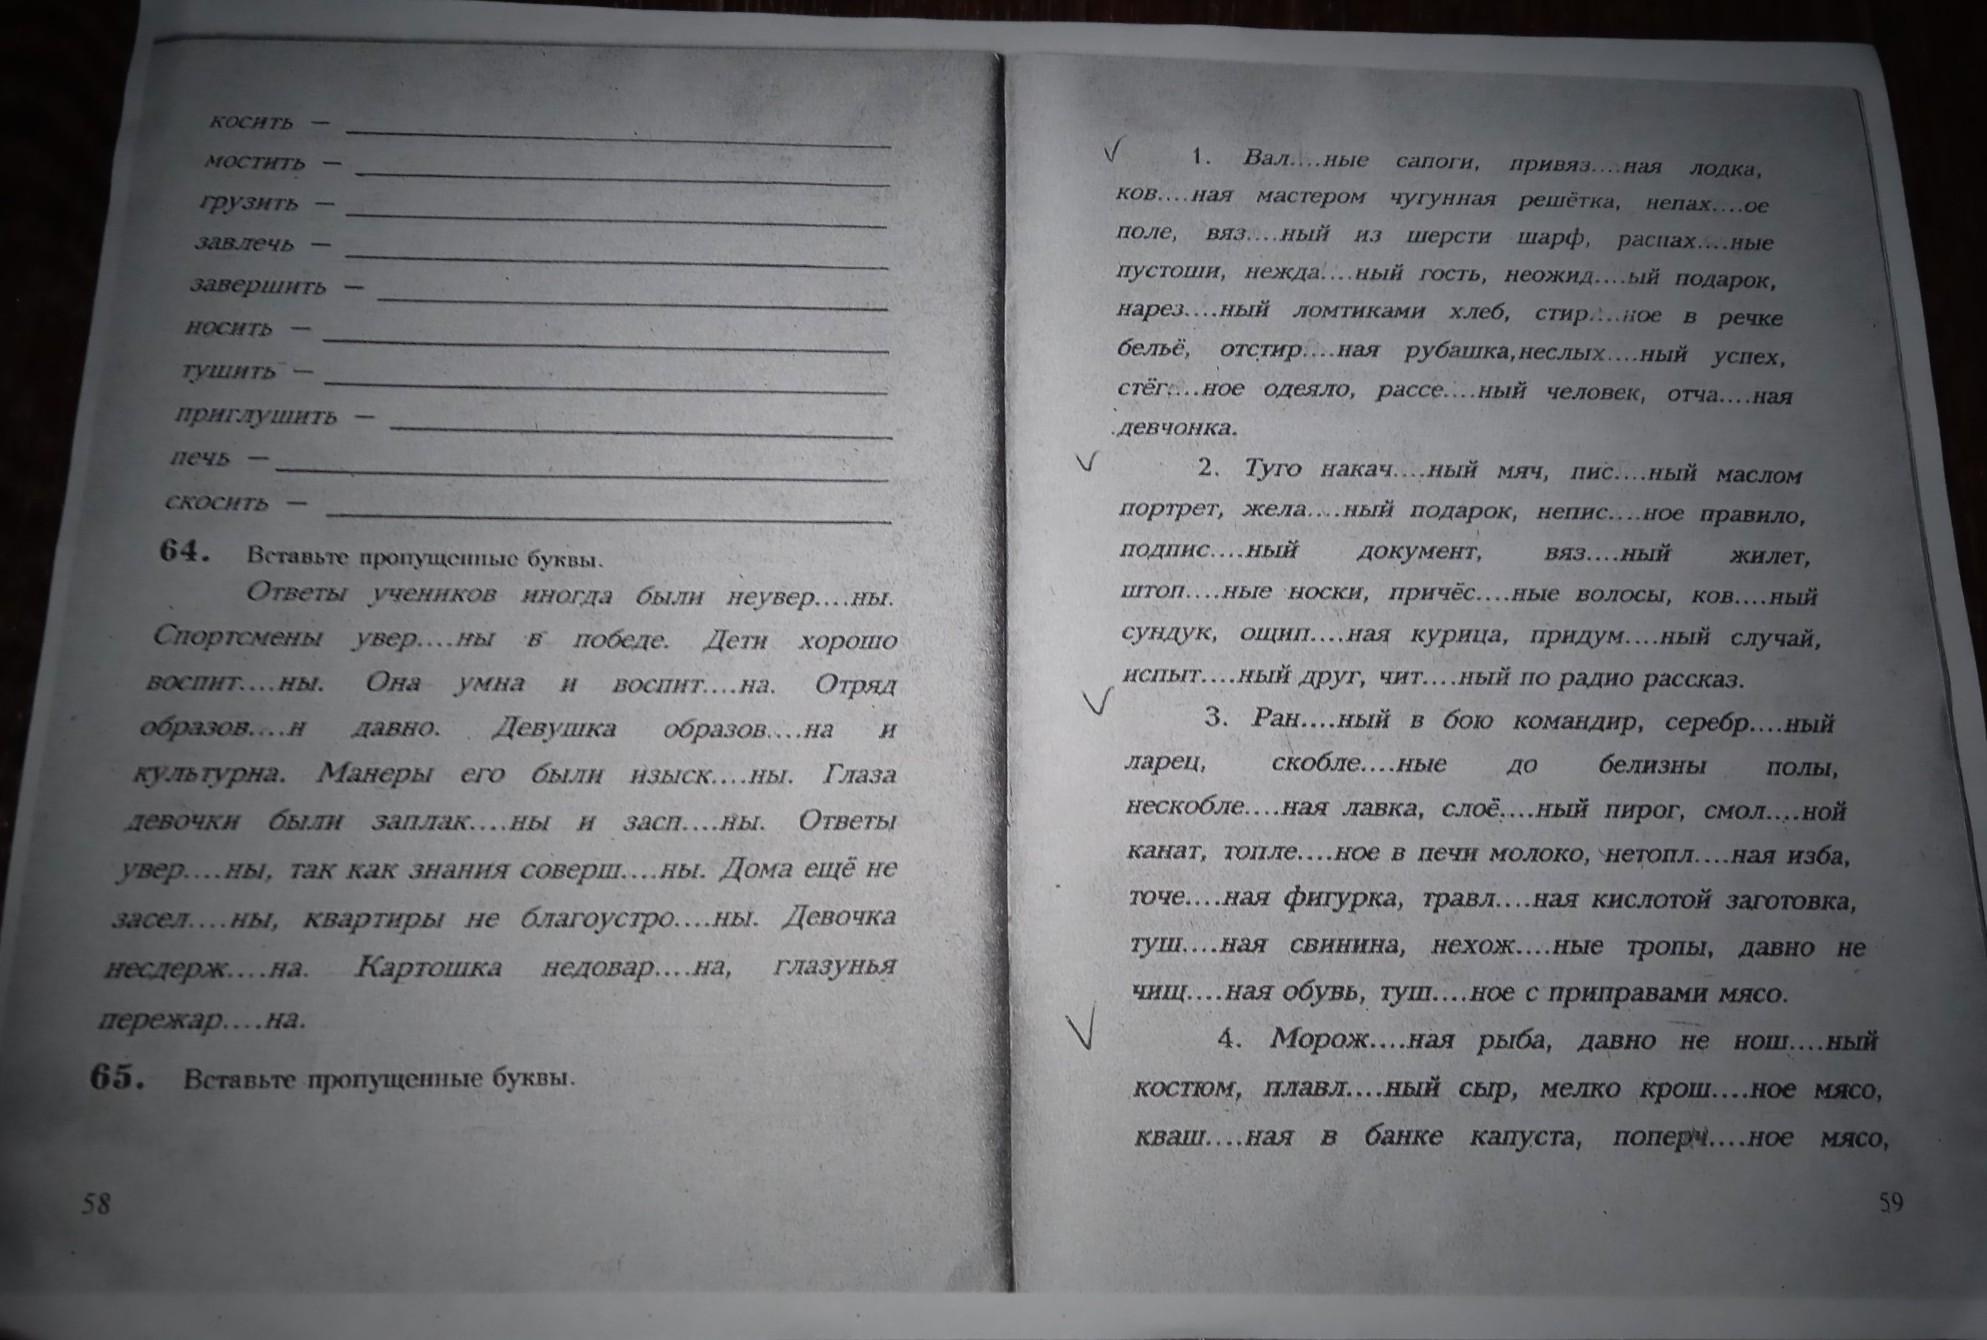 косить —
мостить —
грузить —
завлечь —
завершить —
носить —
тушить —
приглушить —
печь —
скосить —
64. Вставьте пропущенные буквы.
Ответы учеников иногда были неувер....ны.
Спортсмены увер....ны в победе. Дети хорошо
воспит....ны. Она умна и воспит....на. Отряд
образов....н давно. Девушка образов....на и
культурна. Манеры его были изыск....ны. Глаза
девочки были заплак....ны и засп....ны. Ответы
увер....ны, так как знания соверш....ны. Дома ещё не
засел....ны, квартиры не благоустро....ны. Девочка
несдерж....на. Картошка недовар....на, глазунья
пережар....на.
65. Вставьте пропущенные буквы.
58
1. Вал....ные сапоги, привяз....ная лодка,
ков....ная мастером чугунная решётка, непах....ое
поле, вяз....ный из шерсти шарф, распах....ные
пустоши, нежда....ный гость, неожид....ый подарок,
нарез....ный ломтиками хлеб, стир....ное в речке
бельё, отстир....ная рубашка, неслых....ный успех,
стёг....ное одеяло, рассе....ный человек, отча....ная
девчонка.
2. Туго накач....ный мяч, пис....ный маслом
портрет, жела....ный подарок, непис....ное правило,
подпис....ный документ, вяз....ный жилет,
штоп....ные носки, причёс....ные волосы, ков....ный
сундук, ощип....ная курица, придум....ный случай,
испыт....ный друг, чит....ный по радио рассказ.
3. Ран....ный в бою командир, серебр....ный
ларец, скобле....ные до белизны полы,
нескобле....ная лавка, слоё....ный пирог, смол....ной
канат, топле....ное в печи молоко, нетопл....ная изба,
точе....ная фигурка, травл....ная кислотой заготовка,
туш....ная свинина, нехож....ные тропы, давно не
чищ....ная обувь, туш....ное с приправами мясо.
4. Морож....ная рыба, давно не нош....ный
костюм, плавл....ный сыр, мелко крош....ное мясо,
кваш....ная в банке капуста, поперч....ное мясо,
59